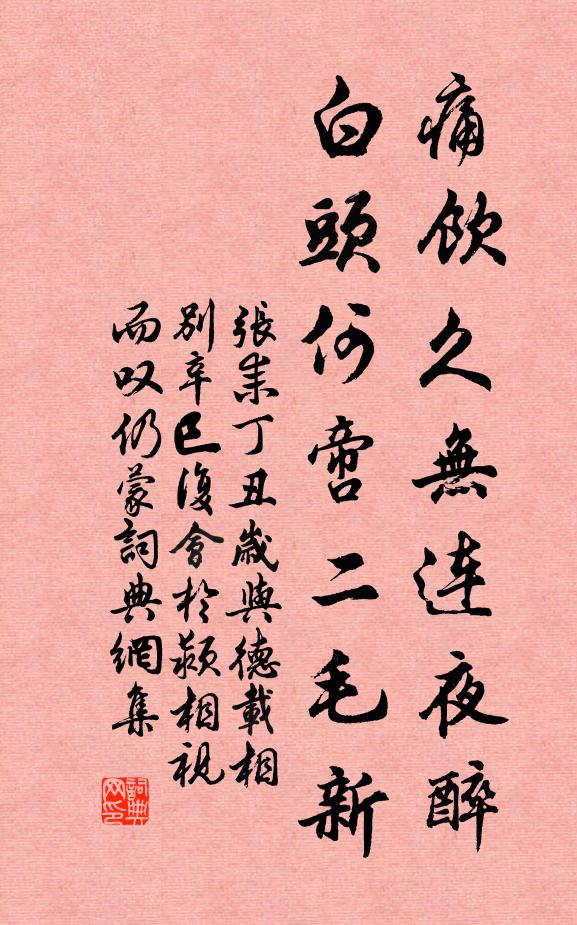 痛飲久無連夜醉
白頭何啻二毛新
張耒丁丑歲與德載相
別辛巳復會於潁相視
而叹仍蒙詞典網集
詞典
网印